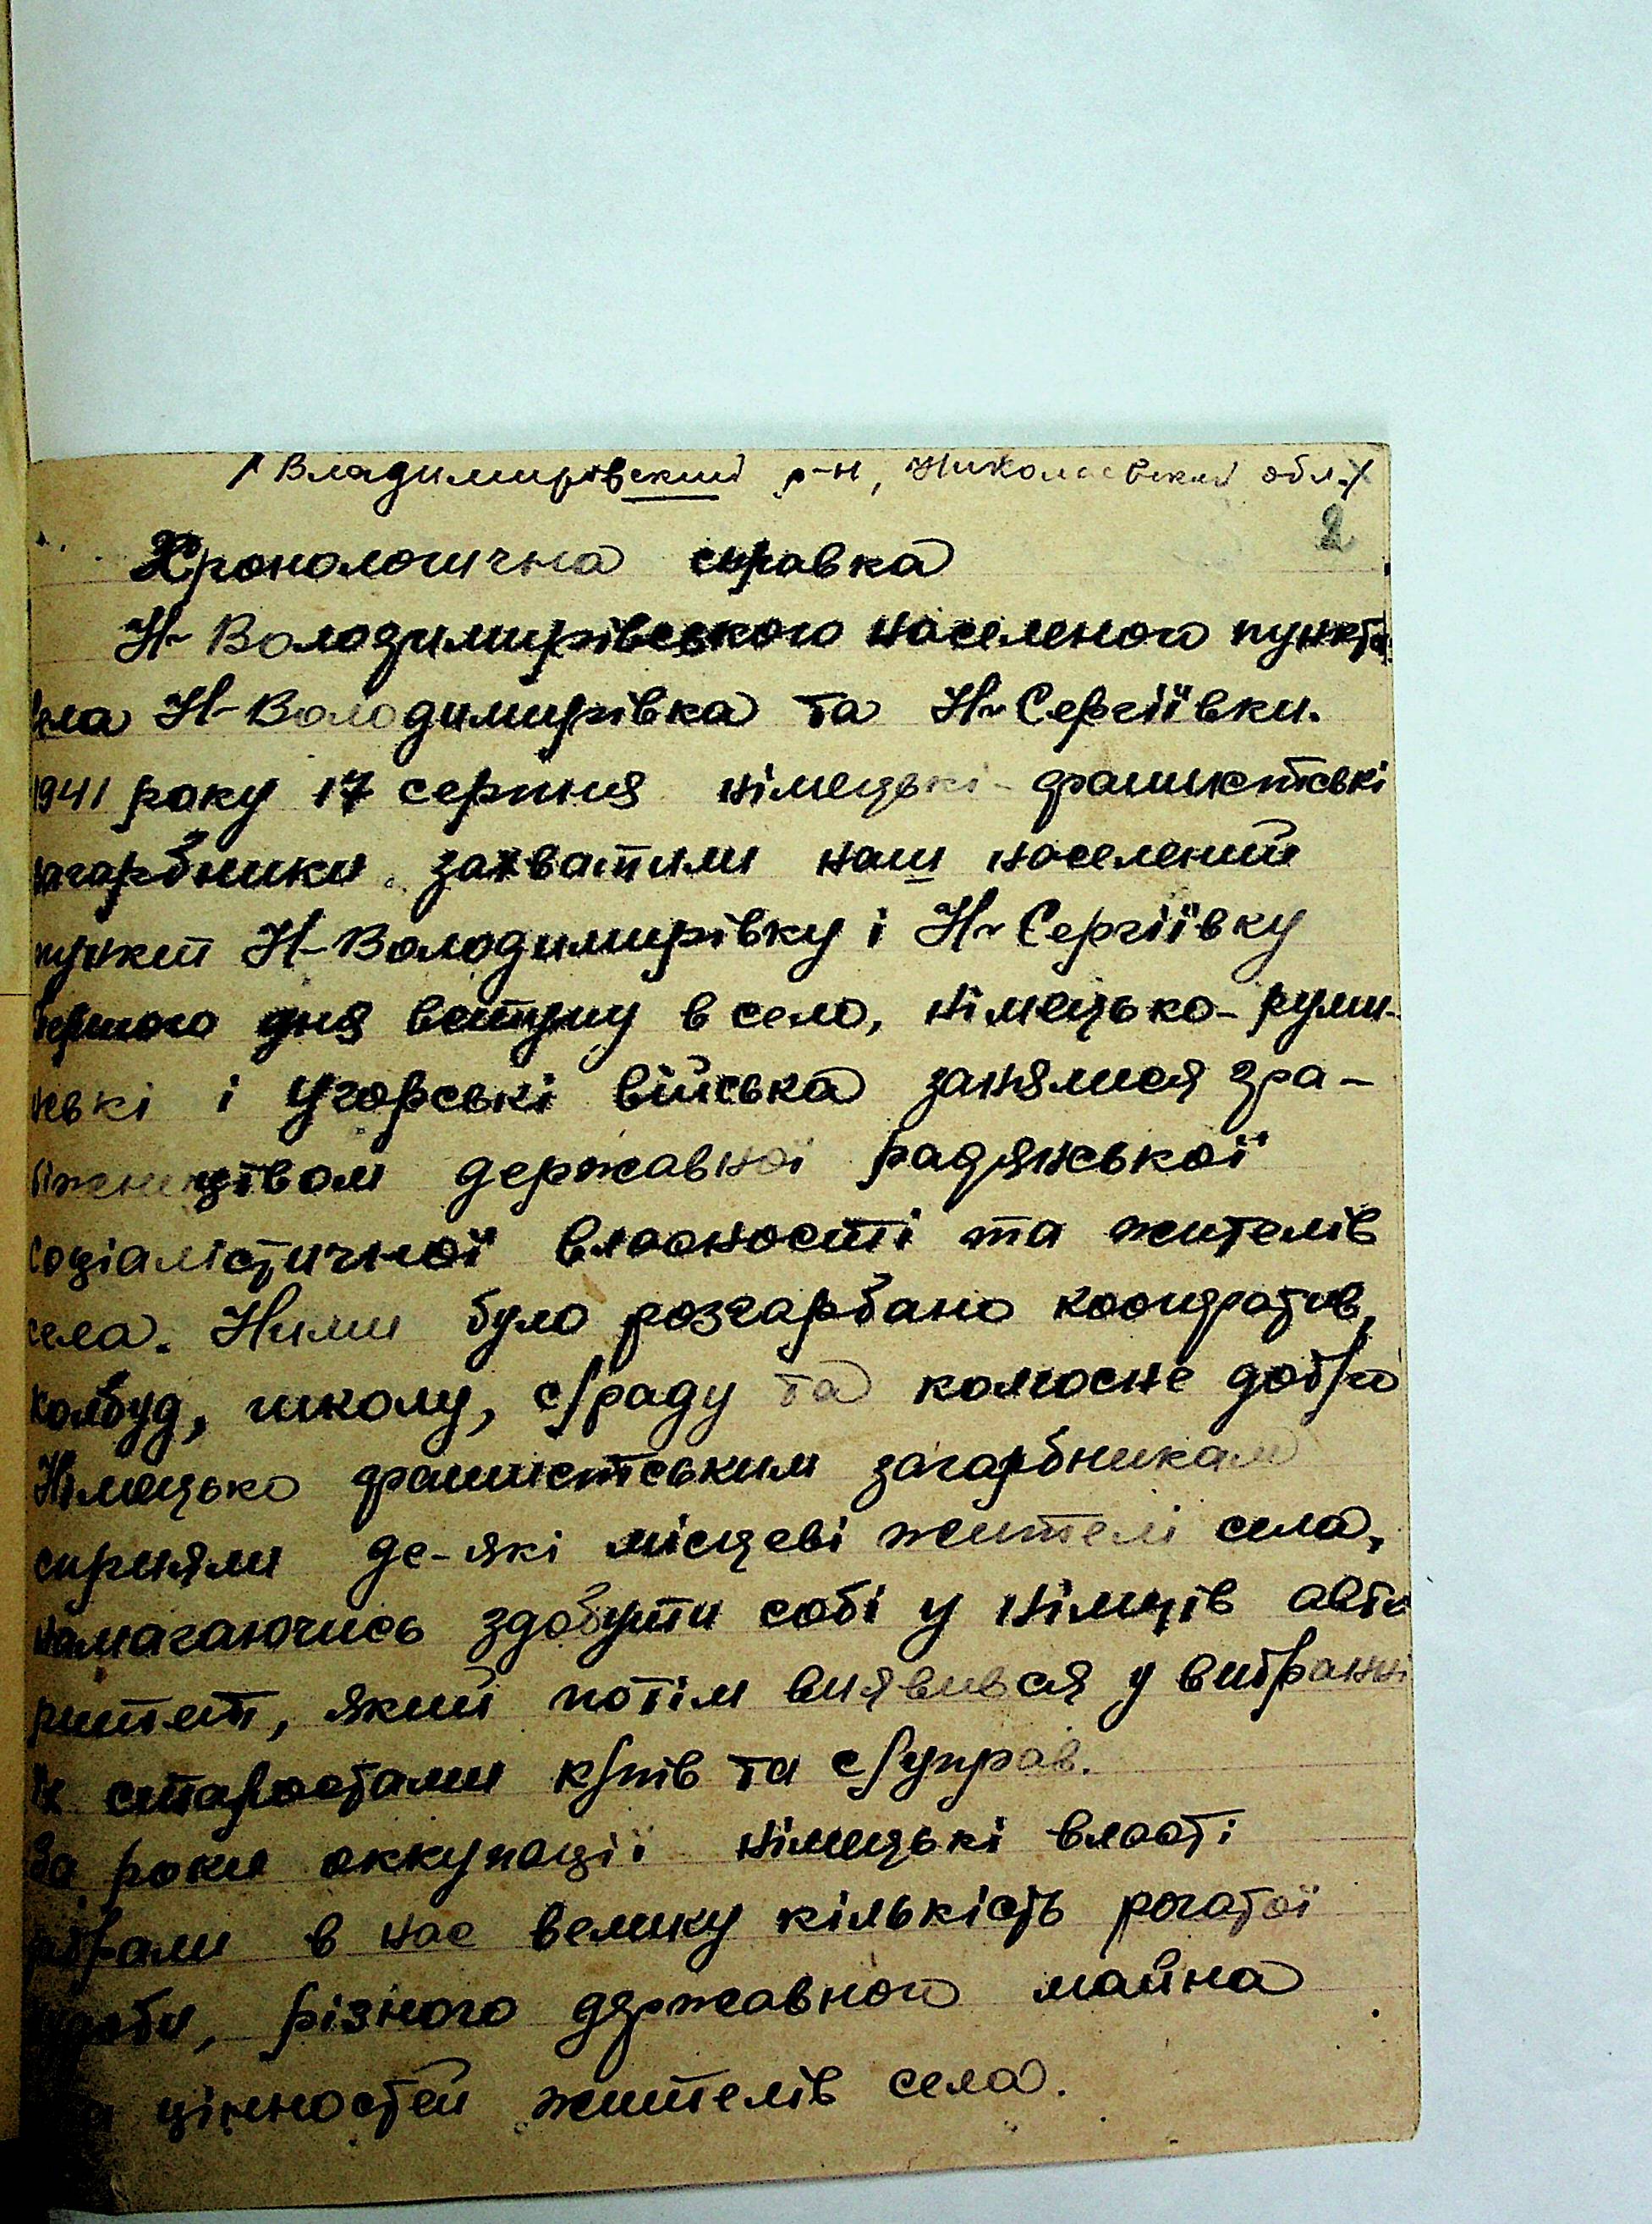 / Владимирівский р-н, Николаевский обл. /
2
Хронологична справка
Н-Володимирівського населеного пункта
села Н-Володимирівка та Н-Сергіївки.
1941 року 17 серпня німецькі-фашистські
загарбники захватили наш населений
пункт Н-Володимирівку і Н-Сергіївку
Першого дня вступу в село, німецько-руми-
нські і угорські війська занялися гра-
біжництвом державної радянської
соціалістичної власності та жителів
села. Ними було розграбовано кооператив,
колбуд, школу, с/раду та колгоспне добро
Німецько фашистським загарбникам
сприяли де-які місцеві жителі села,
намагаючись здобути собі у німців авто
ритет, який потім виявився у вибранні
їх старостами к/пів та с/управ.
За роки оккупації німецькі власті
забрали в нас велику кількість рогатої
худоби, різного державного майна
та цінностей жителів села.